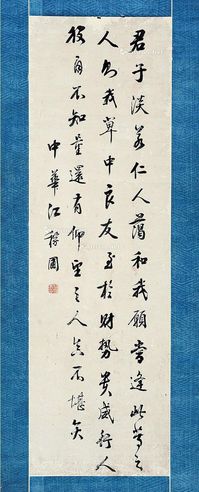 君子淡若仁人藹和我願常逢此等之
人為我草中良友至於財勢炎威行人
後自不知量還有仰望之人真不堪矣
中華江稼圃